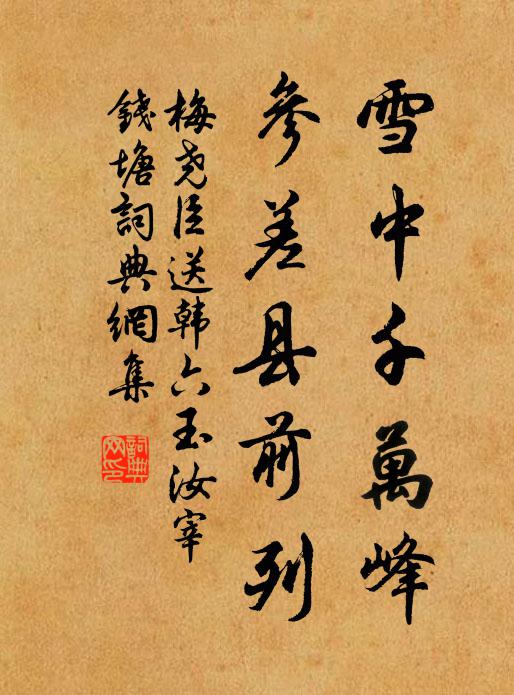 雪中千萬峰
參差县前列
梅尧臣送韩六玉汝宰
錢塘詞典網集
詞典網印